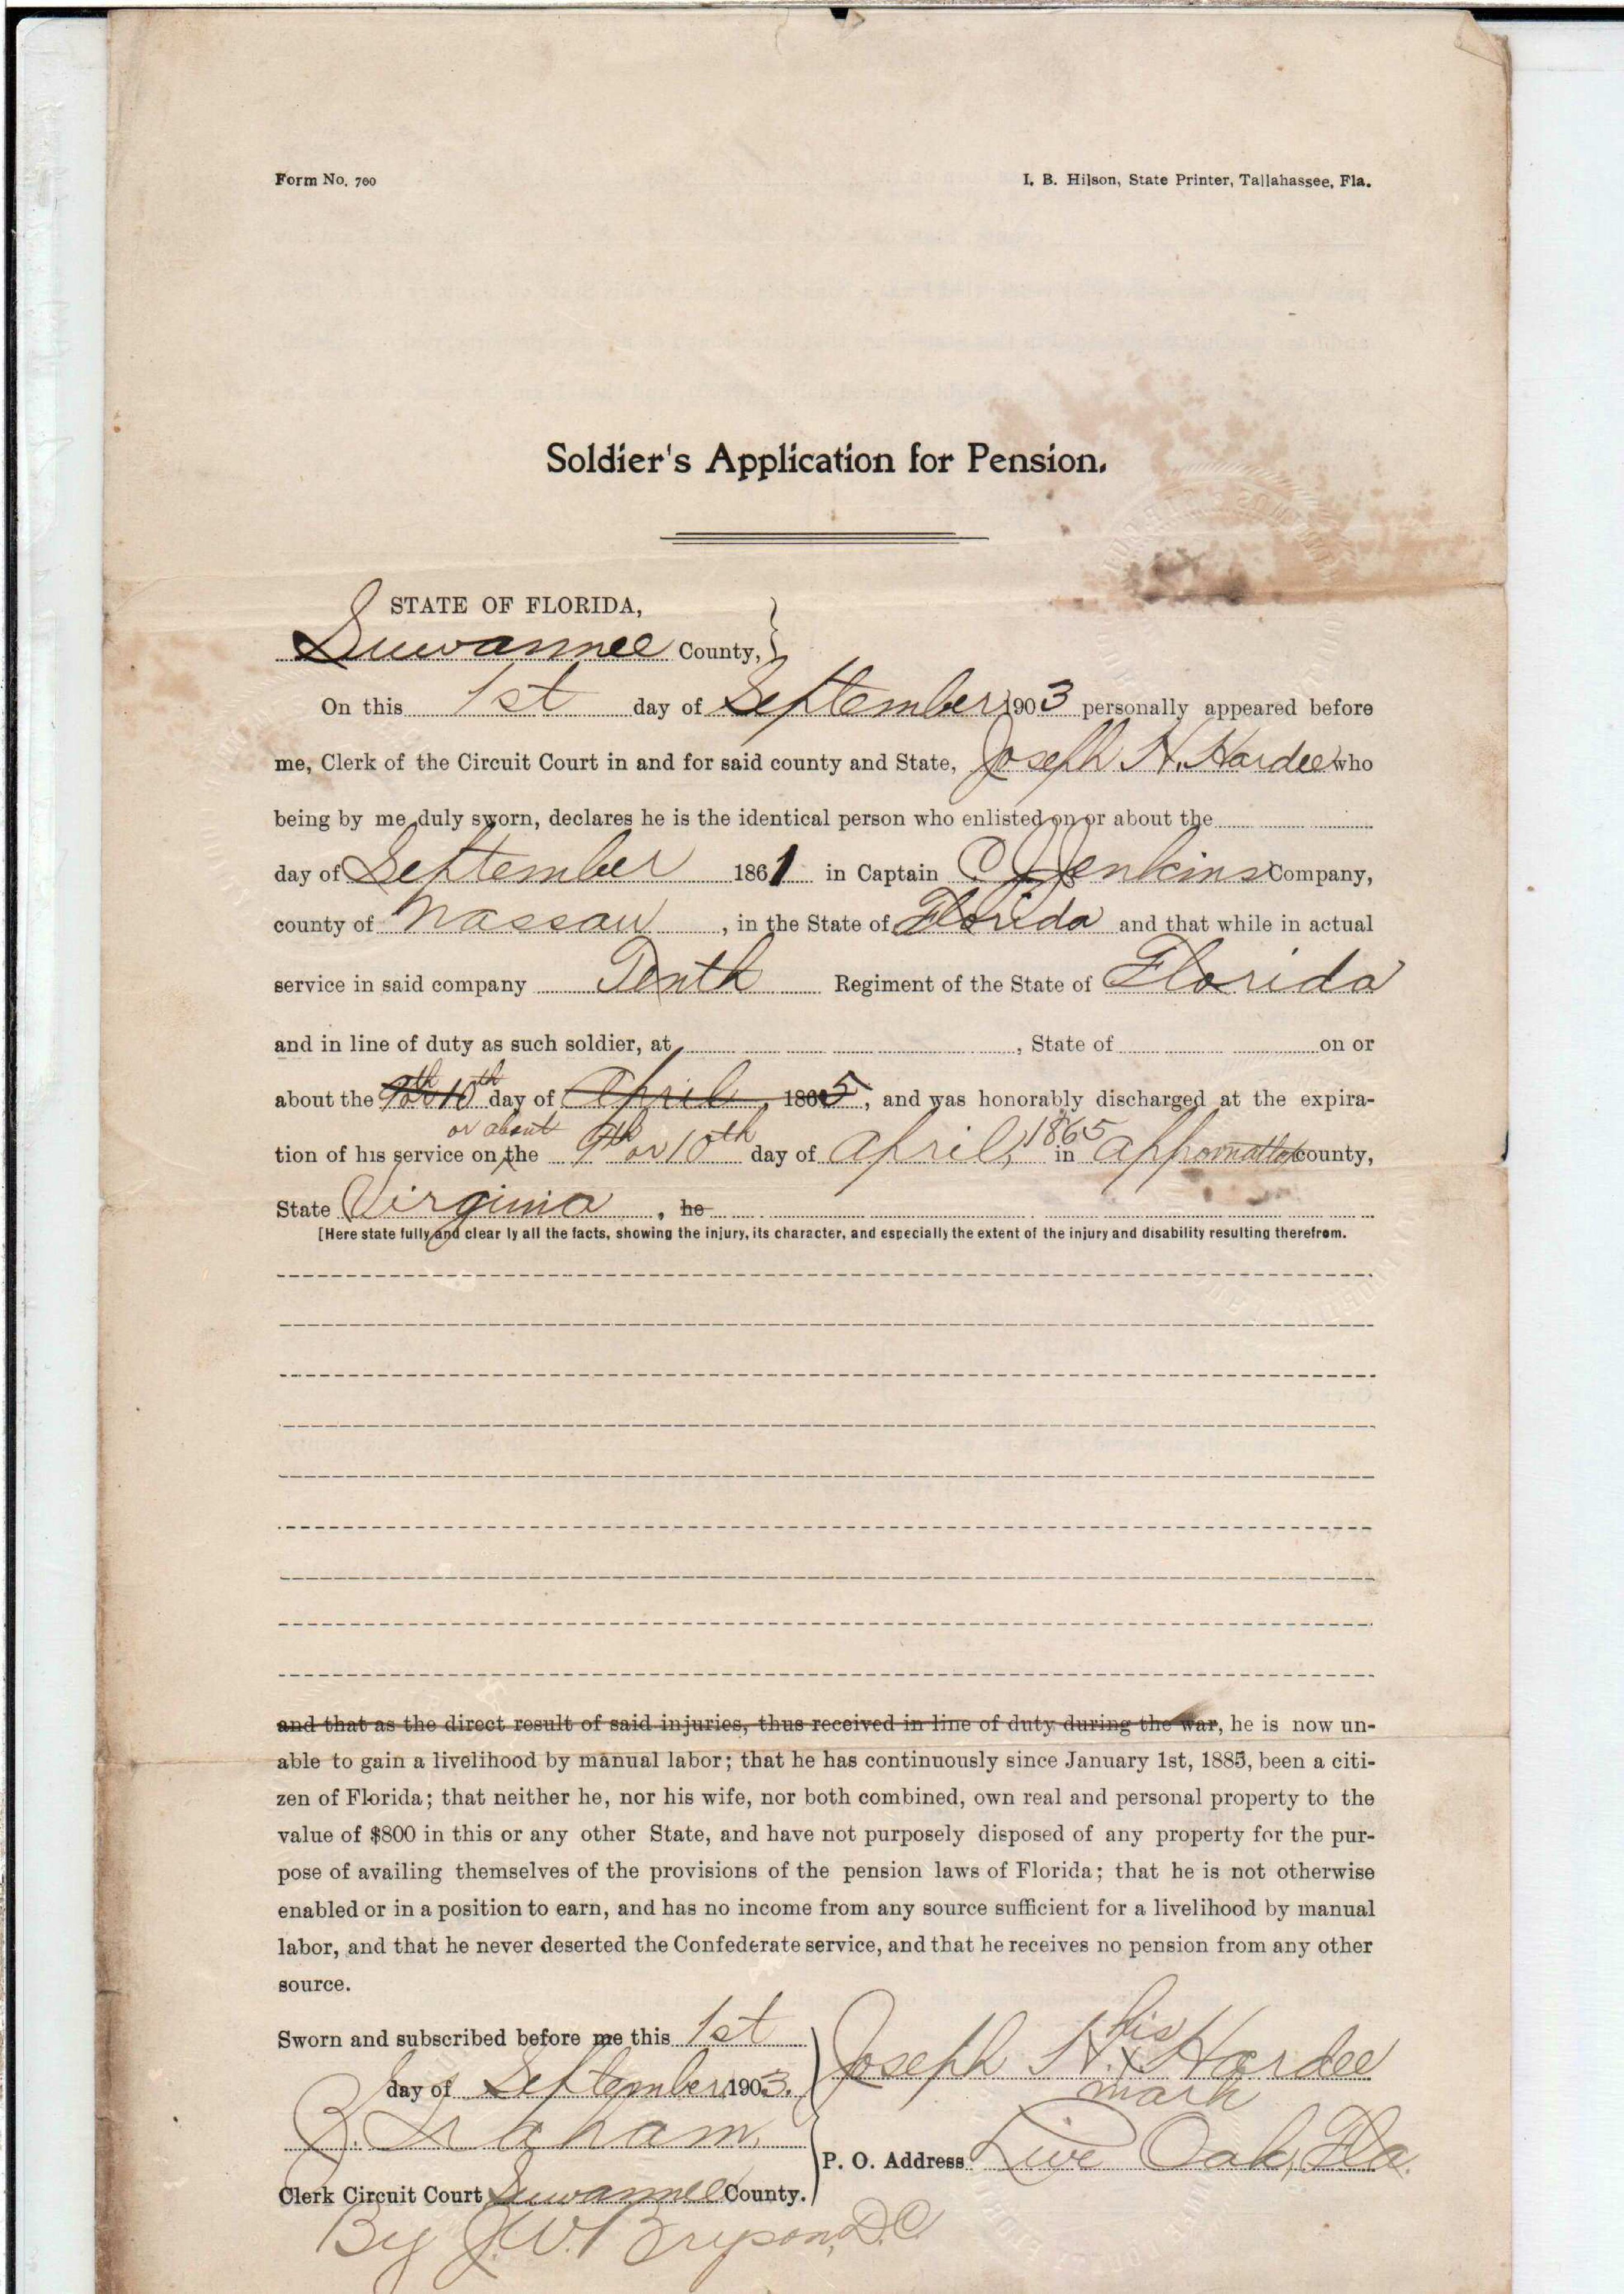 Form No. 700
I. B. Hilson, State Printer, Tallahassee, Fla.
Soldier's Application for Pension.
STATE OF FLORIDA,
Suwannee County,
On this 1st day of September 1903 personally appeared before
me, Clerk of the Circuit Court in and for said county and State, Joseph H. Hardee who
being by me duly sworn, declares he is the identical person who enlisted on or about the
day of September 1861 in Captain C J Jenkins Company,
county of Nassau, in the State of Florida and that while in actual
service in said company Tenth Regiment of the State of Florida
and in line of duty as such soldier, at , State of on or
about the 9th or 10th day of April, 1865, and was honorably discharged at the expira-
or about 1865
tion of his service on the 9th or 10th day of April, in Appomattox county,
State Virginia, he
[Here state fully and clear ly all the facts, showing the injury, its character, and especially the extent of the injury and disability resulting therefrom.
and that as the direct result of said injuries, thus received in line of duty during the war, he is now un-
able to gain a livelihood by manual labor; that he has continuously since January 1st, 1885, been a citi-
zen of Florida; that neither he, nor his wife, nor both combined, own real and personal property to the
value of $800 in this or any other State, and have not purposely disposed of any property for the pur-
pose of availing themselves of the provisions of the pension laws of Florida; that he is not otherwise
enabled or in a position to earn, and has no income from any source sufficient for a livelihood by manual
labor, and that he never deserted the Confederate service, and that he receives no pension from any other
source.
Sworn and subscribed before me this 1st
day of September 1903.
Graham,
Clerk Circuit Court Suwannee County.
By J. W. Bryson, D.C
his
Joseph H. x Hardee
mark
P. O. Address Live Oak, Fla.